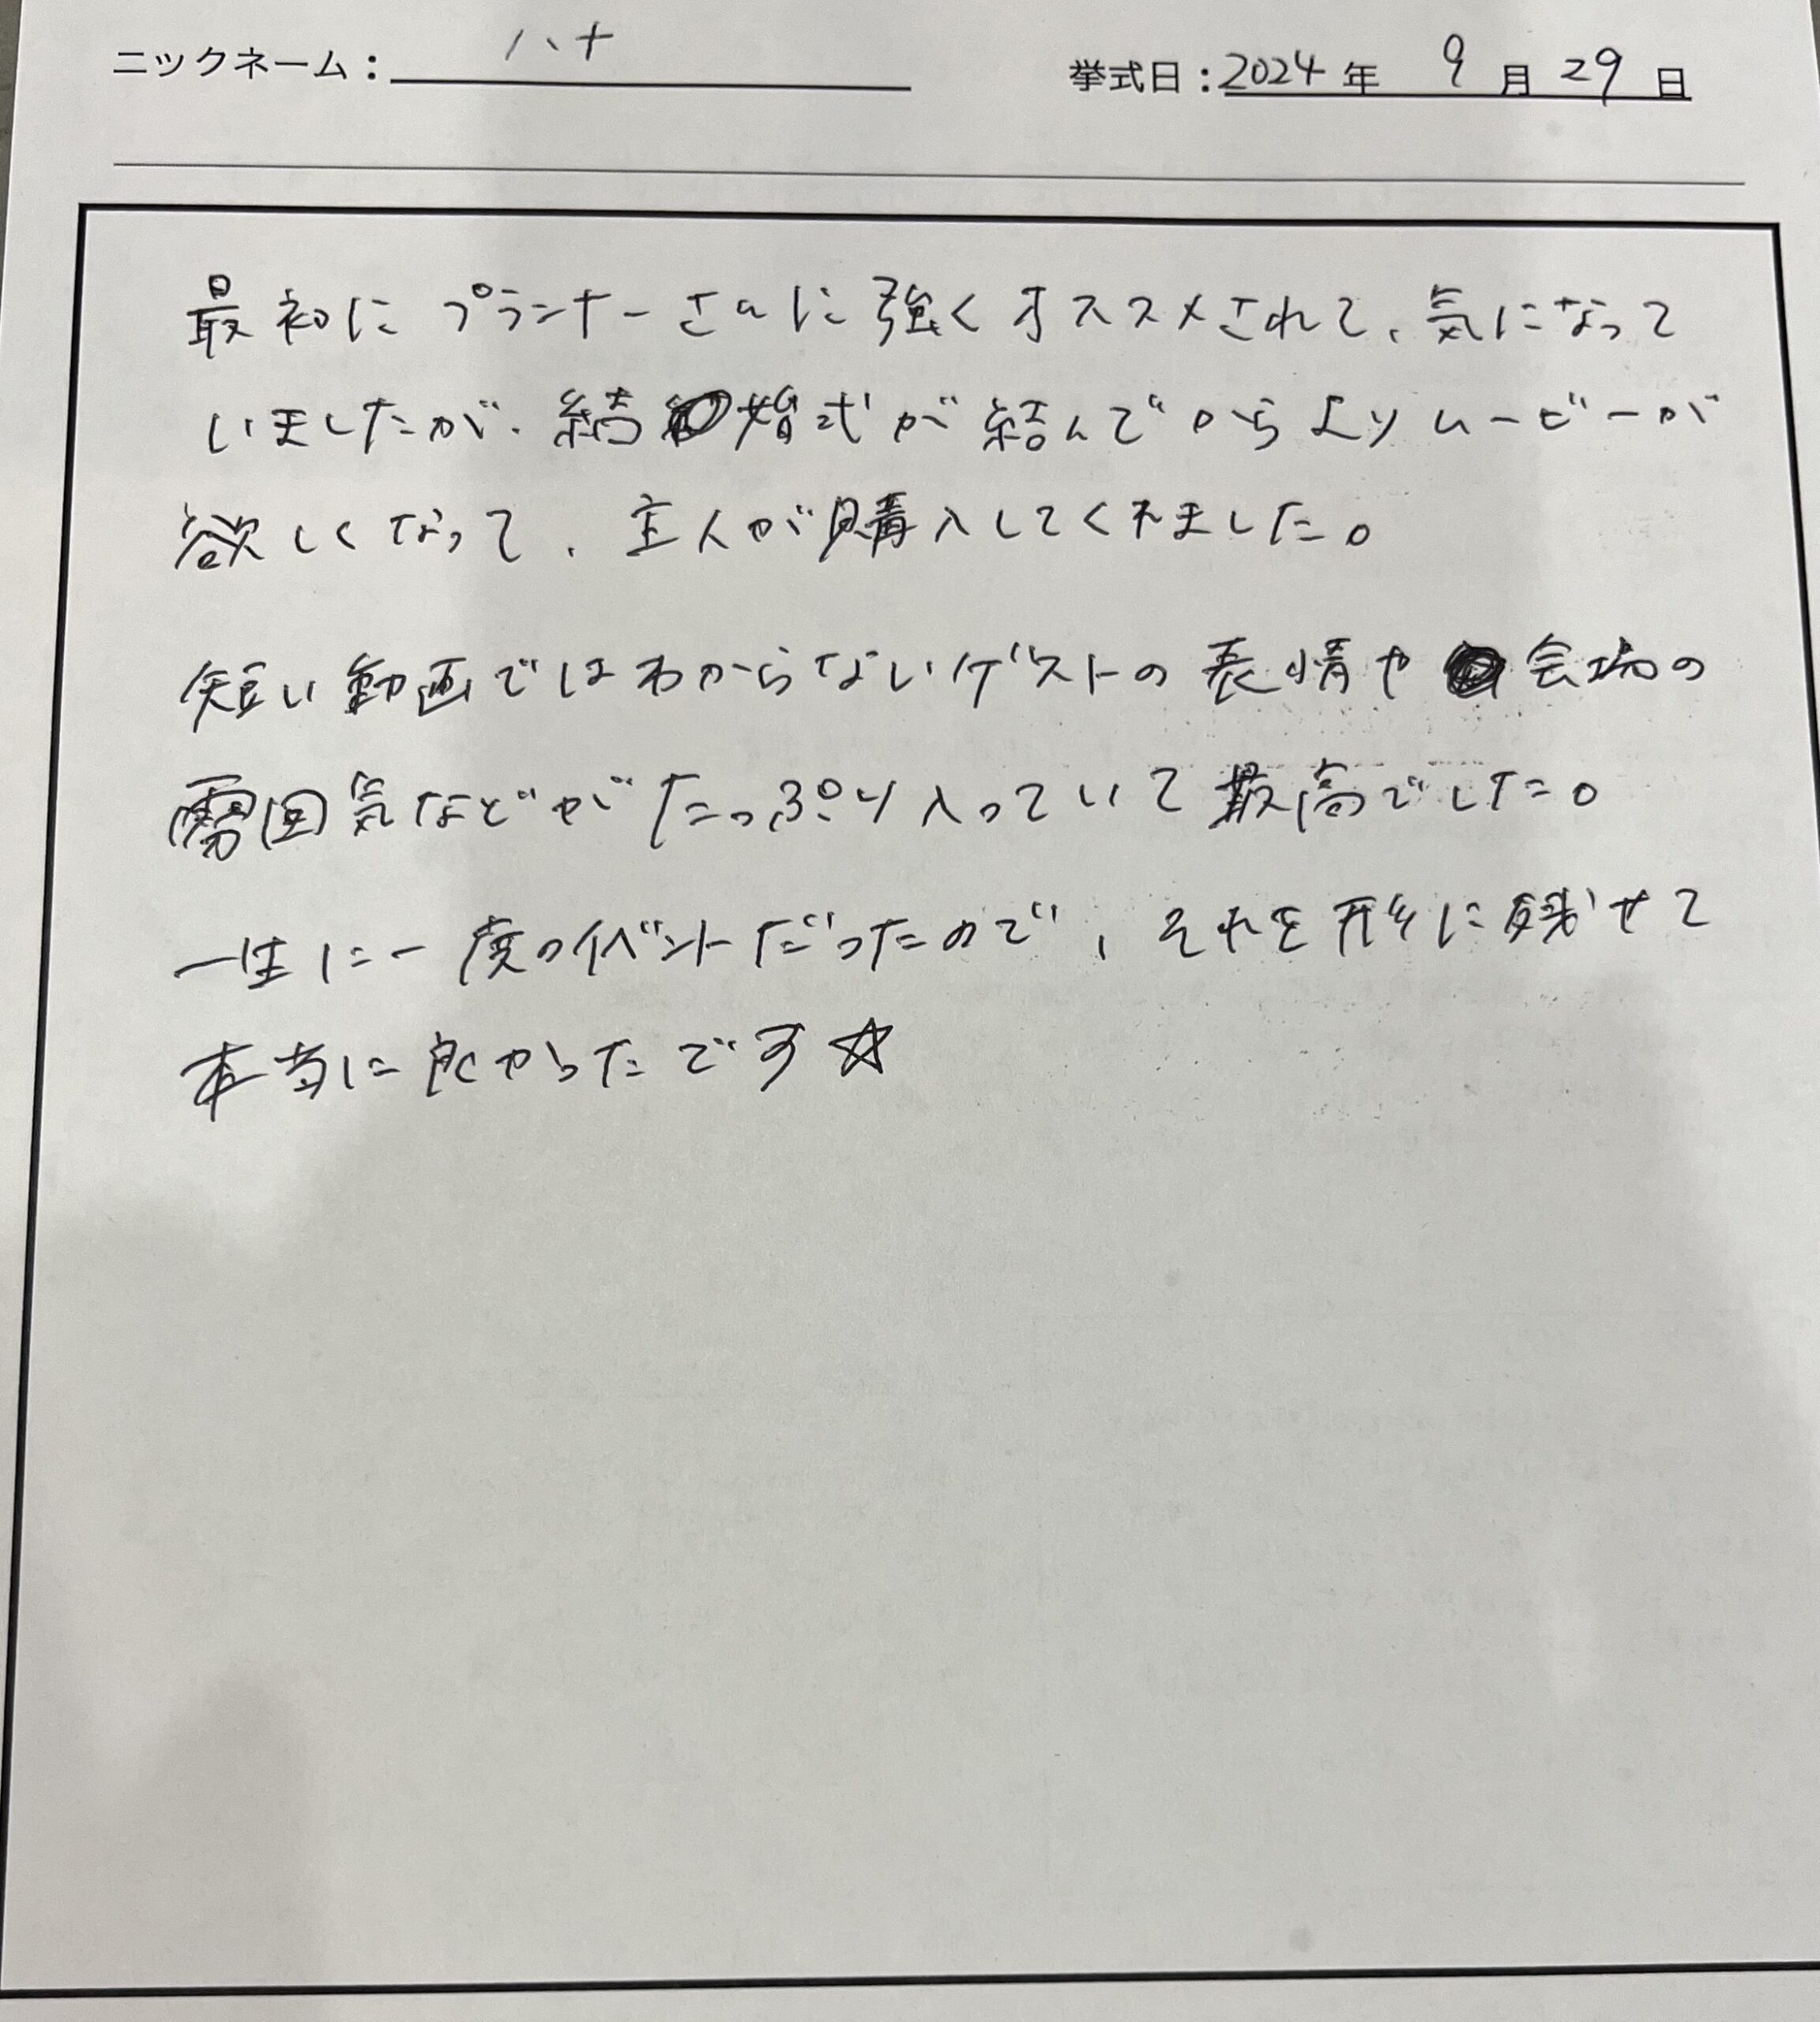 ニックネーム： ハナ 挙式日：2024年 9月29日
最初にプランナーさんに強くオススメされて、気になって
いましたが、結婚式が結んでからよりムービーが
欲しくなって、主人が購入してくれました。
短い動画ではわからないゲストの表情や会場の
雰囲気などがたっぷり入っていて最高でした。
一生に一度のイベントだったので、それを形に残せて
本当に良かったです☆